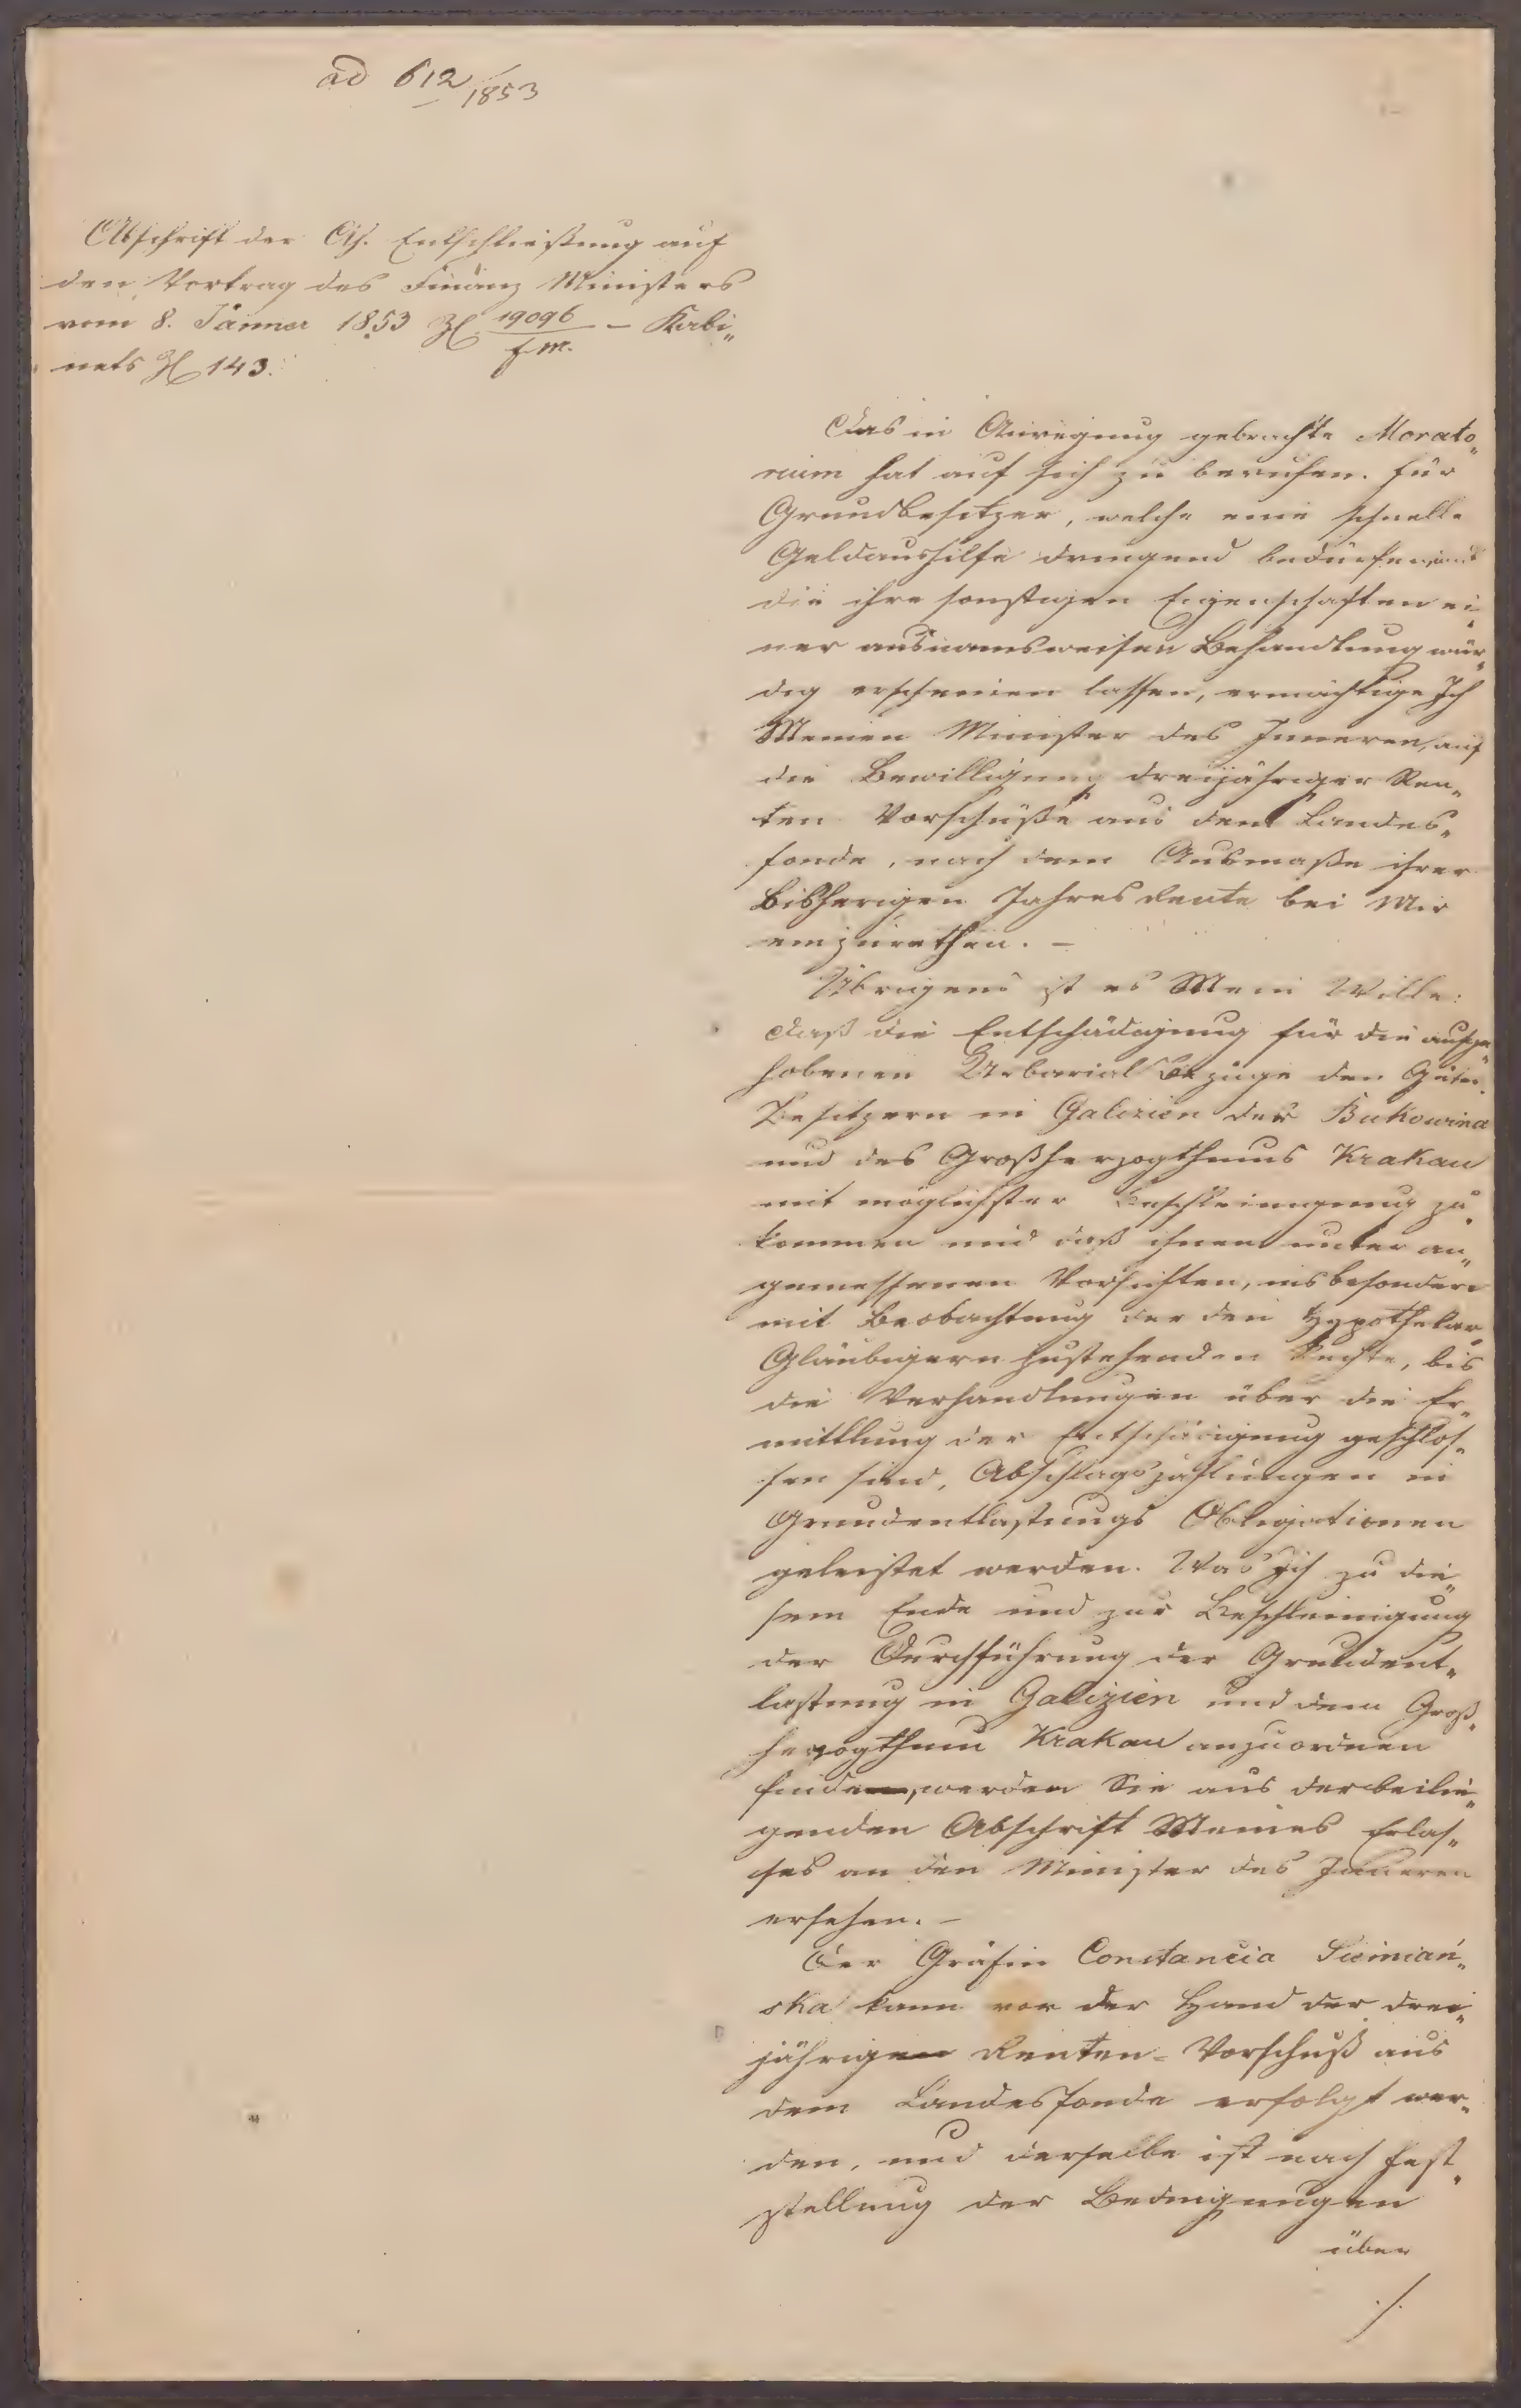 ad 612/1853
Abschrift der Ah. Entschließung auf
den Vortrag des Finanz Ministers
vom 8. Jänner 1853 Zl 19096/f.m. – Kabi„
nets Zl 143.
Das in Anregung gebrachte Morato„
rium hat auf sich zu beruhen. Für
Grundbesitzer, welche eine schnelle
Geldaushilfe dringend bedürfen, und
die ihre sonstigen Eigenschaften ei„
ner ausnamsweisen Behandlung wür„
dig erscheinen lassen, ermächtige Ich
Meinen Minister des Inneren, auf
die Bewilligung dreijähriger Ren„
ten Vorschüße aus dem Landes„
fonde, nach dem Ausmaße ihrer
bisherigen Jahresrente bei Mir
einzurathen. –
Übrigens ist es Mein Wille:
daß die Entschädigung für die aufge„
hobenen Urbarial Bezüge den Güter„
Besitzern in Galizien der Bukowina
und des Großherzogthums Krakau
mit möglichster Beschleinigung zu„
kommen und daß ihnen unter an„
gemessenen Vorsichten, insbesondere
mit Beobachtung der den Hypothekar„
Gläubigern zustehenden Rechte, bis
die Verhandlungen über die Er„
mittlung der Entschädigung geschlos„
sen sind, Abschlagszahlungen in
Grundentlastungs Obligationen
geleistet werden. Was Ich zu die„
sem Ende und zur Beschleinigung
der Durchführung der Grundent„
lastung in Galizien und dem Groß„
herzogthum Krakau anzuordnen
finde, werden Sie aus der beilie„
genden Abschrift Meines Erlas„
ses an den Minister des Inneren
ersehen. –
Der Gräfin Constancia Siemiań„
ska kann vor der Hand der drei„
jährige Renten-Vorschuß aus
dem Landesfonde erfolgt wer„
den, und derselbe ist nach Fest„
stellung der Bedingungen
über
./.